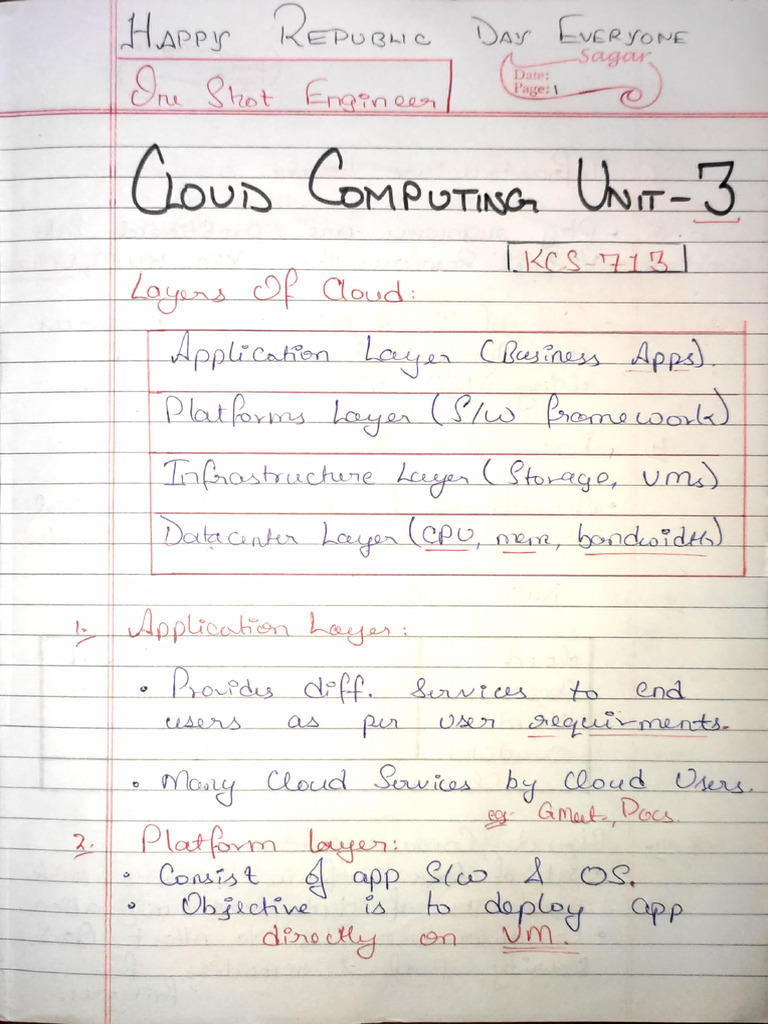 Happy Republic Day Everyone
Sagar
One Shot Engineer
Date:
Page: 1
Cloud Computing Unit-3
KCS-713
Layers Of Cloud:
Application Layer (Business Apps).
Platforms Layer (S/W framework)
Infrastructure Layer (Storage, VMs)
Datacenter Layer (CPU, mem, bandwidth)
1. Application Layer:
• Provides diff. Services to end
users as per user requirments.
• Many Cloud Services by Cloud Users.
eg. GMeet, Docs.
2. Platform layer:
• Consist of app S/W & OS.
• Objective is to deploy app
directly on VM.